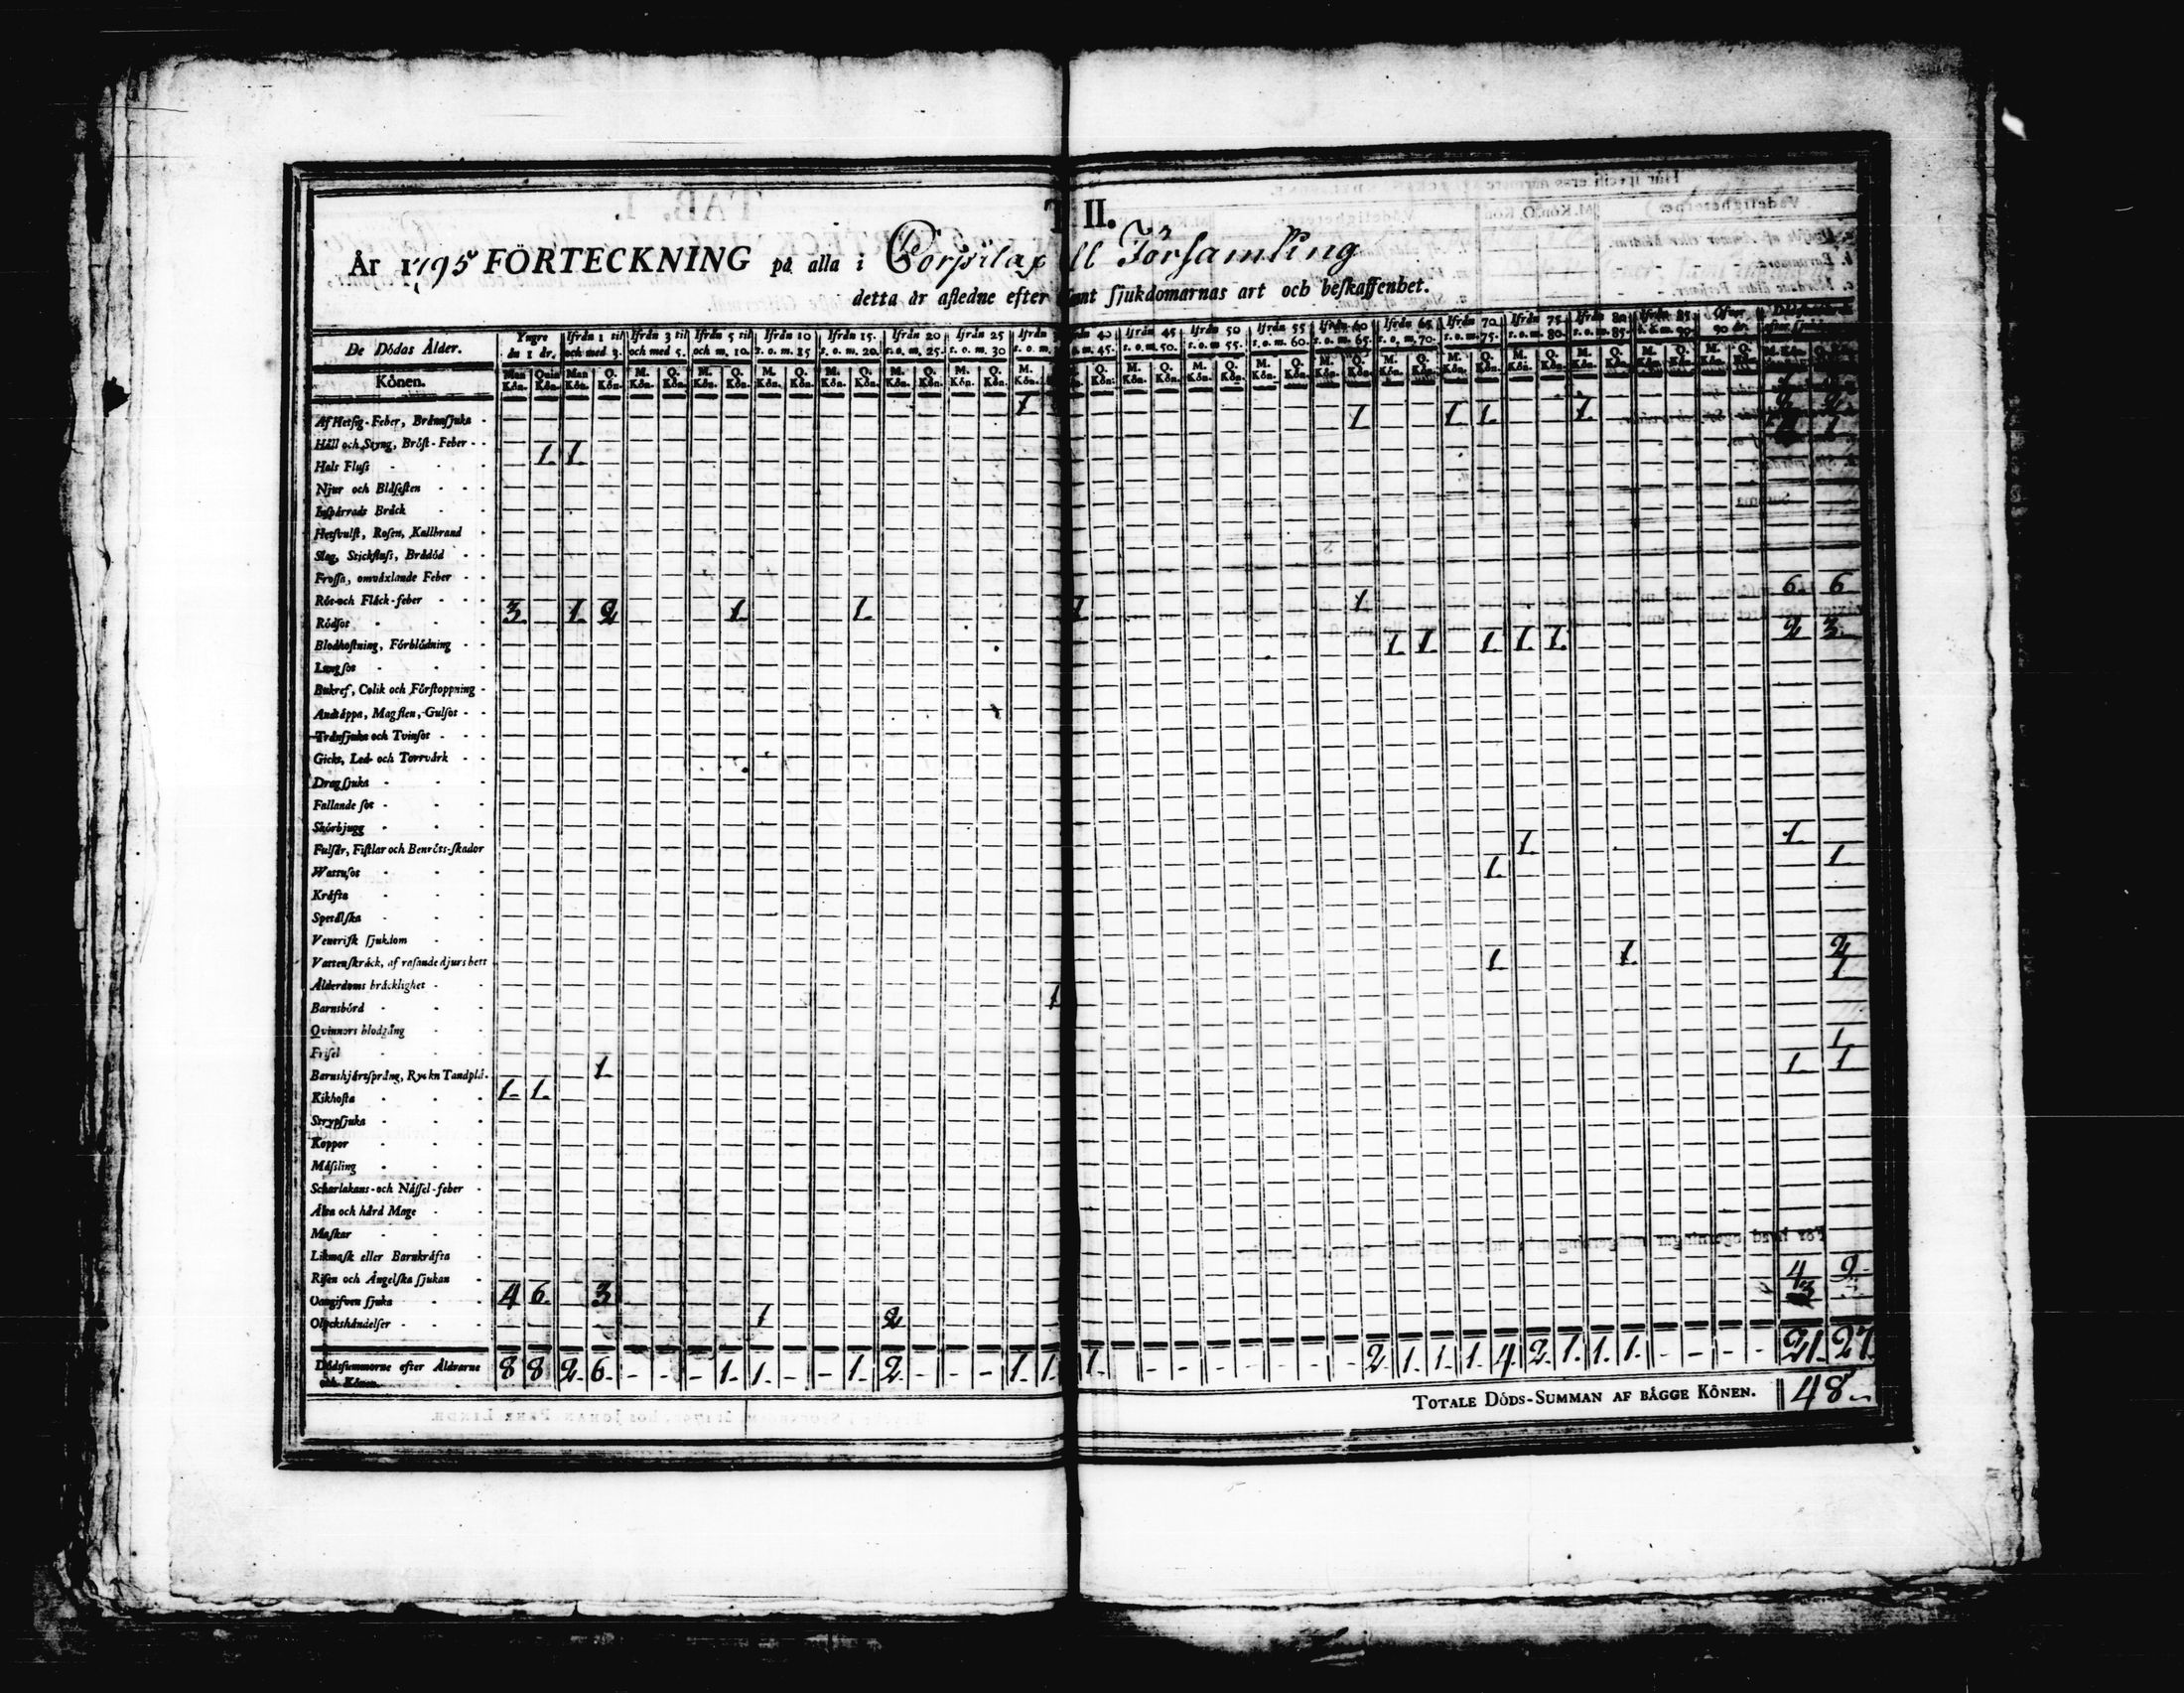 II.
År 1795 FÖRTECKNING på alla i Församling
detta år afledne efter sjukdomarnas art och beskaffenhet.
De Dödas Ålder. Yngre än 1 år. Ifrån 1 til och med 3. Ifrån 3 til och med 5. Ifrån 5 til och m. 10. Ifrån 10 t. o. m. 15 Ifrån 15. t. o. m. 20. Ifrån 20 t. o. m. 25. Ifrån 25 t. o. m. 30 Ifrån 40 m. 45. Ifrån 45 t. o. m. 50. Ifrån 50 t. o. m 55. Ifrån 55 t. o. m. 60. Ifrån 60 t. o. m. 65. Ifrån 65 t. o. m. 70. Ifrån 70 t. o. m. 75. Ifrån 75 t. o. m. 80. Ifrån 80 t. o. m. 85. Ifrån 85. t. o. m. 90. Öfver 90 år.
Könen. Man Kön. Quin Kön. Man Kön. Q. Kön. M. Kön. Q. Kön. M. Kön. Q. Kön. M. Kön. Q. Kön. M. Kön. Q. Kön. M. Kön. Q. Kön. M. Kön. Q. Kön. M. Kön. Kön. M. Kön. Q. Kön. M. Kön. Q. Kön. M. Kön. Q. Kön. M. Kön. Q. Kön. M. Kön. Q. Kön. M. Kön. Q. Kön. M. Kön. Q. Kön. M. Kön. Q. Kön. M. Kön. Q. Kön. M. Kön. Q. Kön.
Af Hetsig-Feber, Brännsjuka 1 1 1 1 1
Håll och Styng, Bröst-Feber 1. 1.
Hals Fluss
Njur och Blåsesten
Inspärrade Bråck
Hetsvulst, Rosen, Kallbrand
Slag, Stickfluss, Brådöd
Frossa, omväxlande Feber
Röt-och Fläck-feber 3. 1. 2 1. 1. 1 1 6. 6
Rödsot 1. 1. 1. 1. 1. 2 3.
Blodhostning, Förblödning
Lungsot
Bukref, Colik och Förstoppning
Andtäppa, Magsten, Gulsot
Trånsjuka och Tvinsot
Gickt, Led- och Torrvärk
Dragsjuka
Fallande sot
Skörbjugg
Fulsår, Fistlar och Benröts-skador 1. 1.
Wattusot 1. 1.
Kräfta
Spetälska
Venerisk sjukdom
Vattenskräck, af rasande djurs bett 1. 1. 2
Ålderdoms bräcklighet 1
Barnsbörd 1
Qvinnors blodgång
Frisel 1.
Barnshjärtsprång, Ryckn Tandplå. 1. 1. 1
Kikhosta 1. 1.
Strypsjuka
Koppor
Mässling
Scharlakans-och Nässel-feber
Älta och hård Mage
Maskar
Likmask eller Barnkräfta
Risen och Ängelska sjukan
Oangifven sjuka 4 6. 3 4 9.
Olyckshändelser 1 2 3
Dödssummorne efter Åldrarne och Könen. 8 8 2. 6. - - - 1. 1. - - 1. 2. - - - 1. 1. 1. - - - - - - - 2 1. 1. 1. 4. 2. 1. 1. 1. - - - - 21. 27.
TOTALE DÖDS-SUMMAN AF BÅGGE KÖNEN. 48